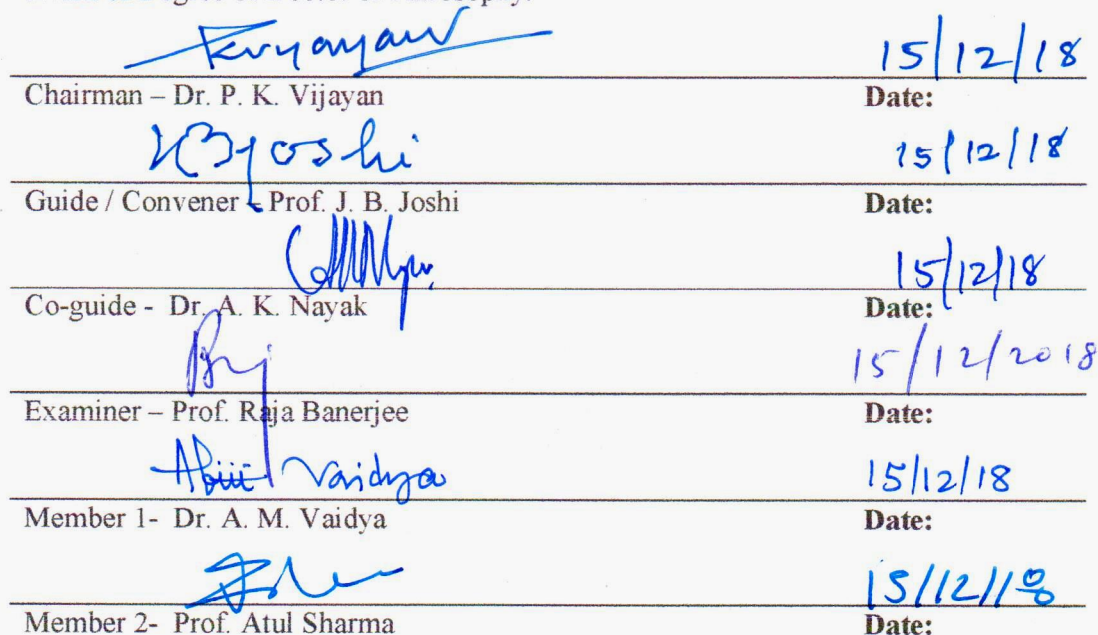 15/12/18
Chairman – Dr. P. K. Vijayan Date:
JBJoshi 15/12/18
Guide / Convener – Prof. J. B. Joshi Date:
15/12/18
Co-guide - Dr. A. K. Nayak Date:
15/12/2018
Examiner – Prof. Raja Banerjee Date:
Vaidya 15/12/18
Member 1- Dr. A. M. Vaidya Date:
15/12/18
Member 2- Prof. Atul Sharma Date: